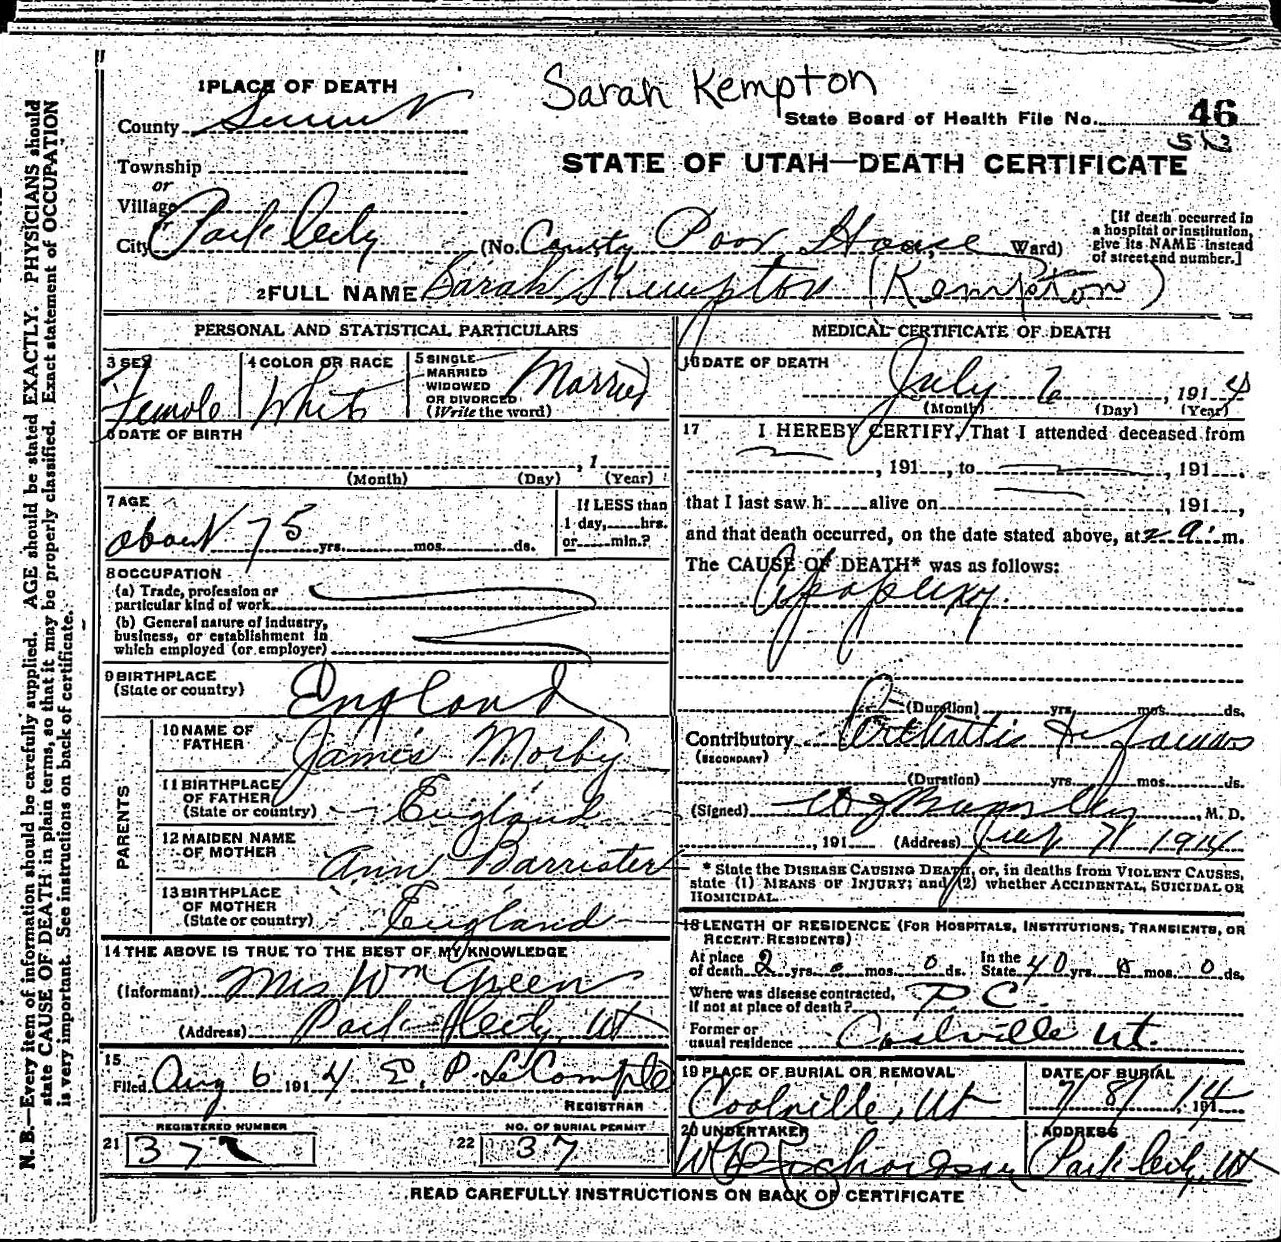 Sarah Kempton
1 PLACE OF DEATH
County Summit
State Board of Health File No. 46
STATE OF UTAH—DEATH CERTIFICATE
Township
or
Village
City Park City (No. County Poor House, Ward)
[If death occurred in
a hospital or institution,
give its NAME instead
of street and number.]
2 FULL NAME Sarah Kempton (Kempton)
PERSONAL AND STATISTICAL PARTICULARS
3 SEX
Female
4 COLOR OR RACE
White
5 SINGLE
MARRIED
WIDOWED
OR DIVORCED
(Write the word)
Married
6 DATE OF BIRTH
, 1
(Month) (Day) (Year)
7 AGE
about 75 yrs. mos. ds.
If LESS than
1 day, hrs.
or min.?
8 OCCUPATION
(a) Trade, profession or
particular kind of work
(b) General nature of industry,
business, or establishment in
which employed (or employer)
9 BIRTHPLACE
(State or country)
England
PARENTS
10 NAME OF
FATHER
James Morby
11 BIRTHPLACE
OF FATHER
(State or country)
England
12 MAIDEN NAME
OF MOTHER
Ann Barrister
13 BIRTHPLACE
OF MOTHER
(State or country)
England
14 THE ABOVE IS TRUE TO THE BEST OF MY KNOWLEDGE
(Informant) Mrs Wm Green
(Address) Park City, Ut
15
Filed Aug 6 1914 E. P. Le Compte
REGISTRAR
REGISTERED NUMBER
21 37
NO. OF BURIAL PERMIT
22 37
MEDICAL CERTIFICATE OF DEATH
16 DATE OF DEATH
July 6, 1914
(Month) (Day) (Year)
17 I HEREBY CERTIFY, That I attended deceased from
, 191 , to , 191 .
that I last saw h alive on , 191 ,
and that death occurred, on the date stated above, at 2 a. m.
The CAUSE OF DEATH* was as follows:
Apoplexy.
(Duration) yrs. mos. ds.
Contributory Arthritis
(SECONDARY)
(Duration) yrs. mos. ds.
(Signed) M. D.
, 191 (Address) July 7 1914
* State the DISEASE CAUSING DEATH, or, in deaths from VIOLENT CAUSES,
state (1) MEANS OF INJURY; and (2) whether ACCIDENTAL, SUICIDAL OR
HOMICIDAL.
18 LENGTH OF RESIDENCE (FOR HOSPITALS, INSTITUTIONS, TRANSIENTS, OR
RECENT RESIDENTS)
At place
of death 2 yrs. 0 mos. 0 ds. In the
State 40 yrs. 0 mos. 0 ds.
Where was disease contracted,
if not at place of death? P.C.
Former or
usual residence Coalville Ut.
19 PLACE OF BURIAL OR REMOVAL
Coalville, Ut
DATE OF BURIAL
7/8/, 1914
20 UNDERTAKER
ADDRESS
Park City, Ut
READ CAREFULLY INSTRUCTIONS ON BACK OF CERTIFICATE
N. B.—Every item of information should be carefully supplied. AGE should be stated EXACTLY. PHYSICIANS should
state CAUSE OF DEATH in plain terms, so that it may be properly classified. Exact statement of OCCUPATION
is very important. See instructions on back of certificate.